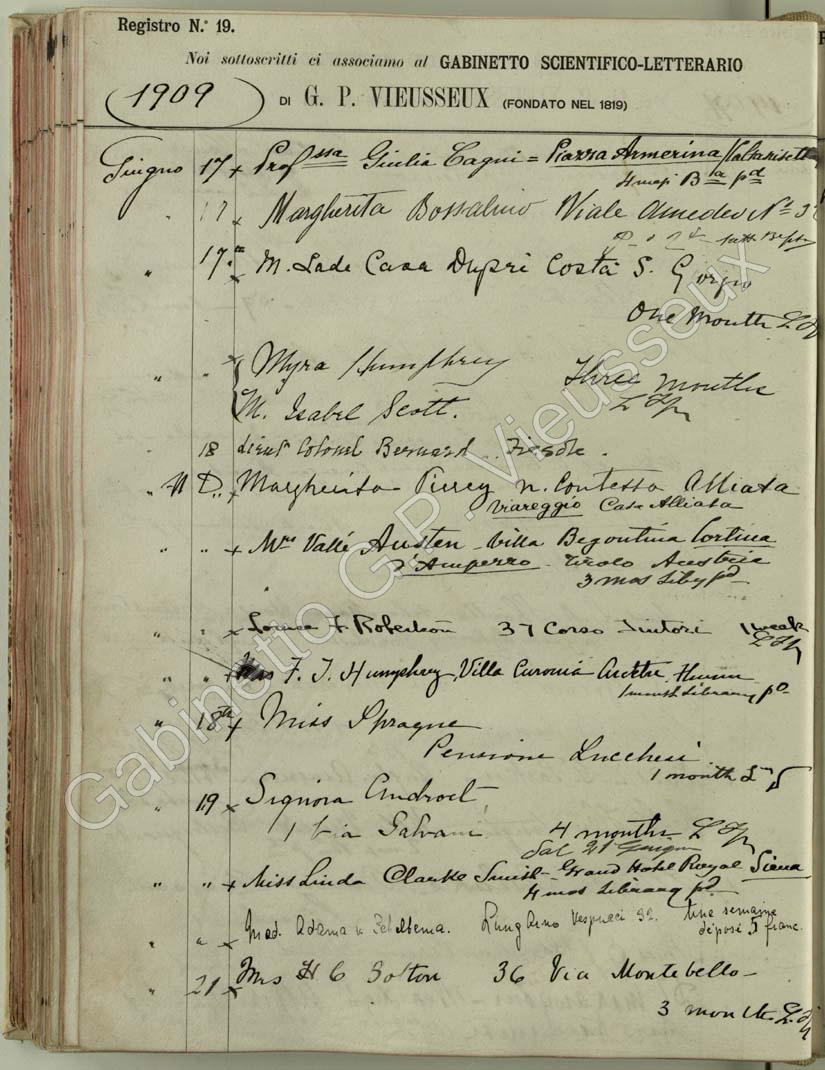 Registro N.° 19.
Noi sottoscritti ci associamo al GABINETTO SCIENTIFICO-LETTERARIO
1909
DI G. P. VIEUSSEUX (FONDATO NEL 1819)
Giugno 17 x Prof ssa Giulia Cagni = Piazza Armerina
4 B pd
" 17 x Margherita Bossalino Viale Amedeo N°
" 17 x M. Lade Casa Dupré Costa S. Giorgio
One Month
" " x Myra Humphrey Three months
M. Isabel Scott.
18 Lieut Colonel Bernard .. Fiesole .
" D.. x Margherita n. Contessa Alliata
Viareggio Casa Alliata
" " x Mrs Vallé Austen - Villa Begontina Cortina
d'Ampezzo - Tirolo Austria
3 mos Liby pd
" " x Louise F. Robertson 37 Corso Tintori 1 week
" " x F. J. Humphrey, Villa Curonia
1 month Library pd
" 18th x Miss Sprague
Pensione Lucchesi
1 month
" 19 x Signora
1 Via Galvani 4 months
dal 21 Giugno
" " x Miss Linda Clarke Smith - Grand Hotel Royal Siena
4 mos Library pd
" " x Mad. Adama v. Scheltema. Lung'Arno Vespucci 32. Une semaine
déposé 5 franc.
" 21 x Mrs H C Bolton 36 Via Montebello -
3 months
Gabinetto G.P. Vieusseux